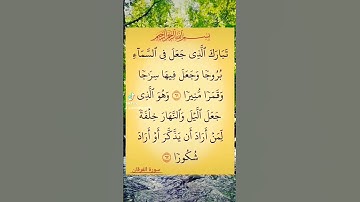 بِسْمِ اللَّهِ الرَّحْمَٰنِ الرَّحِيمِ
تَبَارَكَ ٱلَّذِى جَعَلَ فِى ٱلسَّمَآءِ
بُرُوجًا وَجَعَلَ فِيهَا سِرَٰجًا
وَقَمَرًا مُّنِيرًا ٦١ وَهُوَ ٱلَّذِى
جَعَلَ ٱلَّيْلَ وَٱلنَّهَارَ خِلْفَةً
لِّمَنْ أَرَادَ أَن يَذَّكَّرَ أَوْ أَرَادَ
شُكُورًا ٦٢
سورة الفرقان